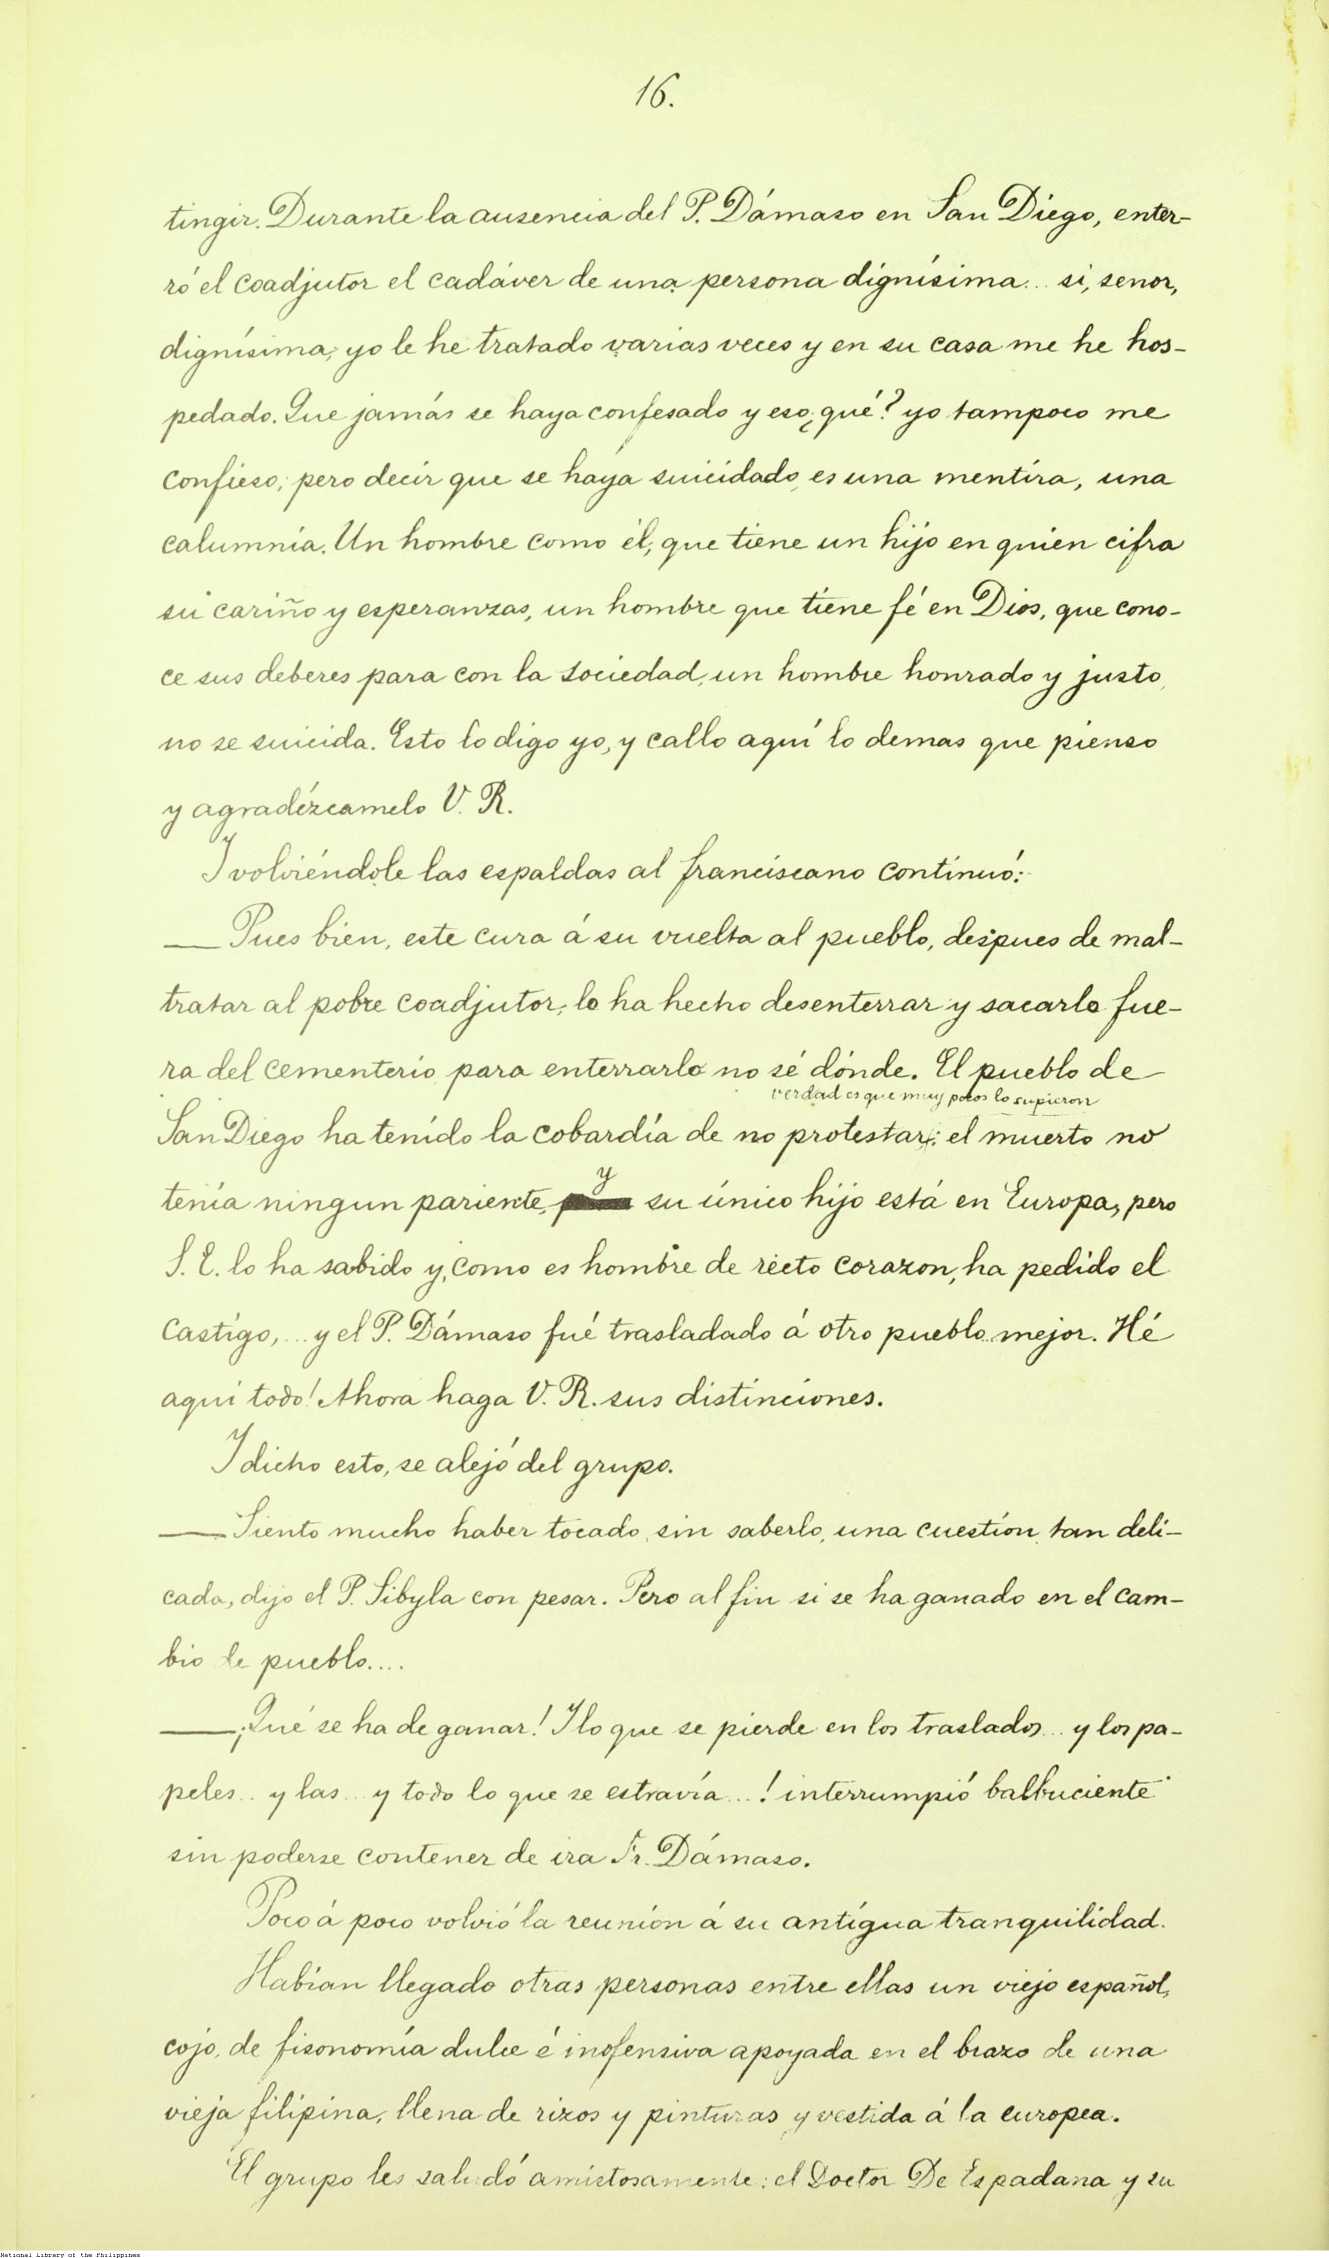 16.
tingir. Durante la ausencia del P. Dámaso en San Diego, enter-
ró el coadjutor el cadáver de una persona dignísima... si, senor,
dignísima, yo le he tratado varias veces y en su casa me he hos-
pedado. Que jamás se haya confesado y eso ¿qué? yo tampoco me
confieso, pero decir que se haya suicidado, es una mentira, una
calumnia. Un hombre como él, que tiene un hijo en quien cifra
su cariño y esperanzas, un hombre que tiene fé en Dios, que cono-
ce sus deberes para con la sociedad, un hombre honrado y justo,
no se suicida. Esto lo digo yo, y callo aquí lo demas que pienso
y agradézcamelo V. R.
Y volviéndole las espaldas al franciscano continuó:
— Pues bien, este cura á su vuelta al pueblo, despues de mal-
tratar al pobre coadjutor, lo ha hecho desenterrar y sacarlo fue-
ra del cementerio para enterrarlo no sé dónde. El pueblo de
verdad es que muy pocos lo supieron
San Diego ha tenido la cobardía de no protestar; el muerto no
y
tenía ningun pariente, su único hijo está en Europa, pero
S. E. lo ha sabido y, como es hombre de recto corazon, ha pedido el
castigo, ... y el P. Dámaso fué trasladado á otro pueblo mejor. Hé
aquí todo! Ahora haga V. R. sus distinciones.
Y dicho esto, se alejó del grupo.
— Siento mucho haber tocado, sin saberlo, una cuestión tan deli-
cada, dijo el P. Sibyla con pesar. Pero al fin si se ha ganado en el cam-
bio de pueblo....
— ¡Qué se ha de ganar! Y lo que se pierde en los traslados... y los pa-
peles... y las... y todo lo que se estravía...! interrumpió balbuciente
sin poderse contener de ira Fr. Dámaso.
Poco á poco volvió la reunión á su antígua tranquilidad.
Habían llegado otras personas entre ellas un viejo español,
cojo, de fisonomía dulce é inofensiva apoyada en el brazo de una
vieja filipina, llena de rizos y pinturas y vestida á la europea.
El grupo les saludó amistosamente: el Doctor De Espadana y su
National Library of the Philippines